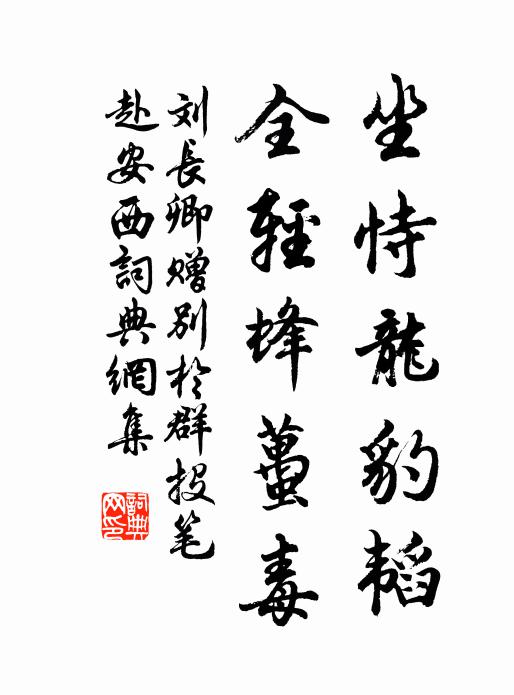 坐恃龍豹韬
全輕蜂蠆毒
刘長卿赠别於群投笔
赴安西詞典網集
詞典
网印